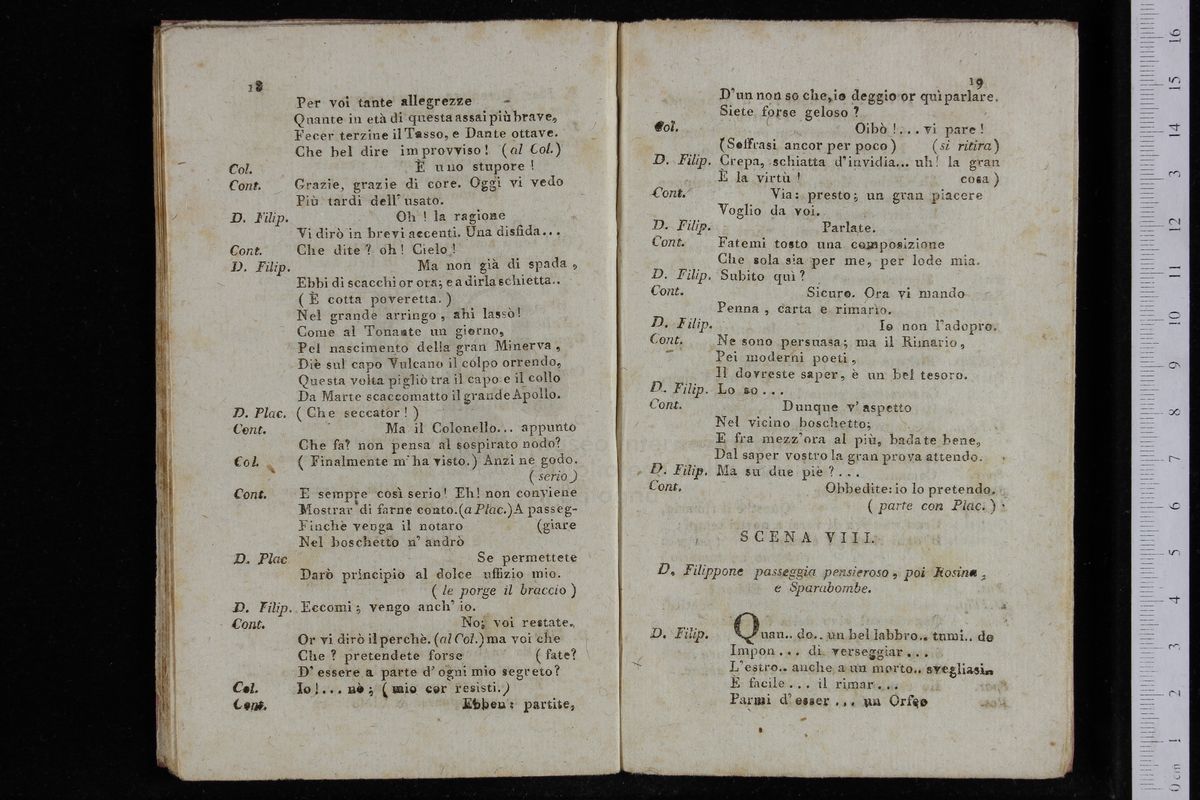 18
Per voi tante allegrezze
Quante in età di questa assai più brave,
Fecer terzine il Tasso, e Dante ottave.
Che bel dire improvviso! (al Col.)
Col. È uno stupore!
Cont. Grazie, grazie di core. Oggi vi vedo
Più tardi dell' usato.
D. Filip. Oh! la ragione
Vi dirò in brevi accenti. Una disfida...
Cont. Che dite? oh! Cielo!
D. Filip. Ma non già di spada,
Ebbi di scacchi or ora; e a dirla schietta..
( È cotta poveretta. )
Nel grande arringo, ahi lasso!
Come al Tonante un giorno,
Pel nascimento della gran Minerva,
Diè sul capo Vulcano il colpo orrendo,
Questa volta pigliò tra il capo e il collo
Da Marte scaccomatto il grande Apollo.
D. Plac. ( Che seccator! )
Cont. Ma il Colonello... appunto
Che fa? non pensa al sospirato nodo?
Col. ( Finalmente m'ha visto.) Anzi ne godo.
( serio )
Cont. E sempre così serio! Eh! non conviene
Mostrar di farne conto.(a Plac.) A passeg-
Finchè venga il notaro (giare
Nel boschetto n' andrò
D. Plac Se permettete
Darò principio al dolce uffizio mio.
( le porge il braccio )
D. Filip. Eccomi; vengo anch' io.
Cont. No; voi restate.
Or vi dirò il perchè. (al Col.) ma voi che
Che? pretendete forse ( fate?
D' essere a parte d' ogni mio segreto?
Col. Io!... nò; ( mio cor resisti.)
Cont. Ebben: partite,
19
D'un non so che, io deggio or quì parlare.
Siete forse geloso?
Col. Oibò!... vi pare!
(Soffrasi ancor per poco) (si ritira)
D. Filip. Crepa, schiatta d'invidia... uh! la gran
È la virtù! cosa )
Cont. Via: presto; un gran piacere
Voglio da voi.
D. Filip. Parlate.
Cont. Fatemi tosto una composizione
Che sola sia per me, per lode mia.
D. Filip. Subito quì?
Cont. Sicuro. Ora vi mando
Penna, carta e rimario.
D. Filip. Io non l'adopro.
Cont. Ne sono persuasa; ma il Rimario,
Pei moderni poeti,
Il dovreste saper, è un bel tesoro.
D. Filip. Lo so...
Cont. Dunque v' aspetto
Nel vicino boschetto;
E fra mezz'ora al più, badate bene,
Dal saper vostro la gran prova attendo.
D. Filip. Ma su due piè?...
Cont. Obbedite: io lo pretendo.
( parte con Plac. )
SCENA VIII.
D. Filippone passeggia pensieroso, poi Rosina,
e Sparabombe.
D. Filip. Quan.. do.. un bel labbro.. tumi.. do
Impon... di verseggiar...
L'estro.. anche a un morto.. svegliasi..
E facile... il rimar...
Parmi d'esser... un Orfeo